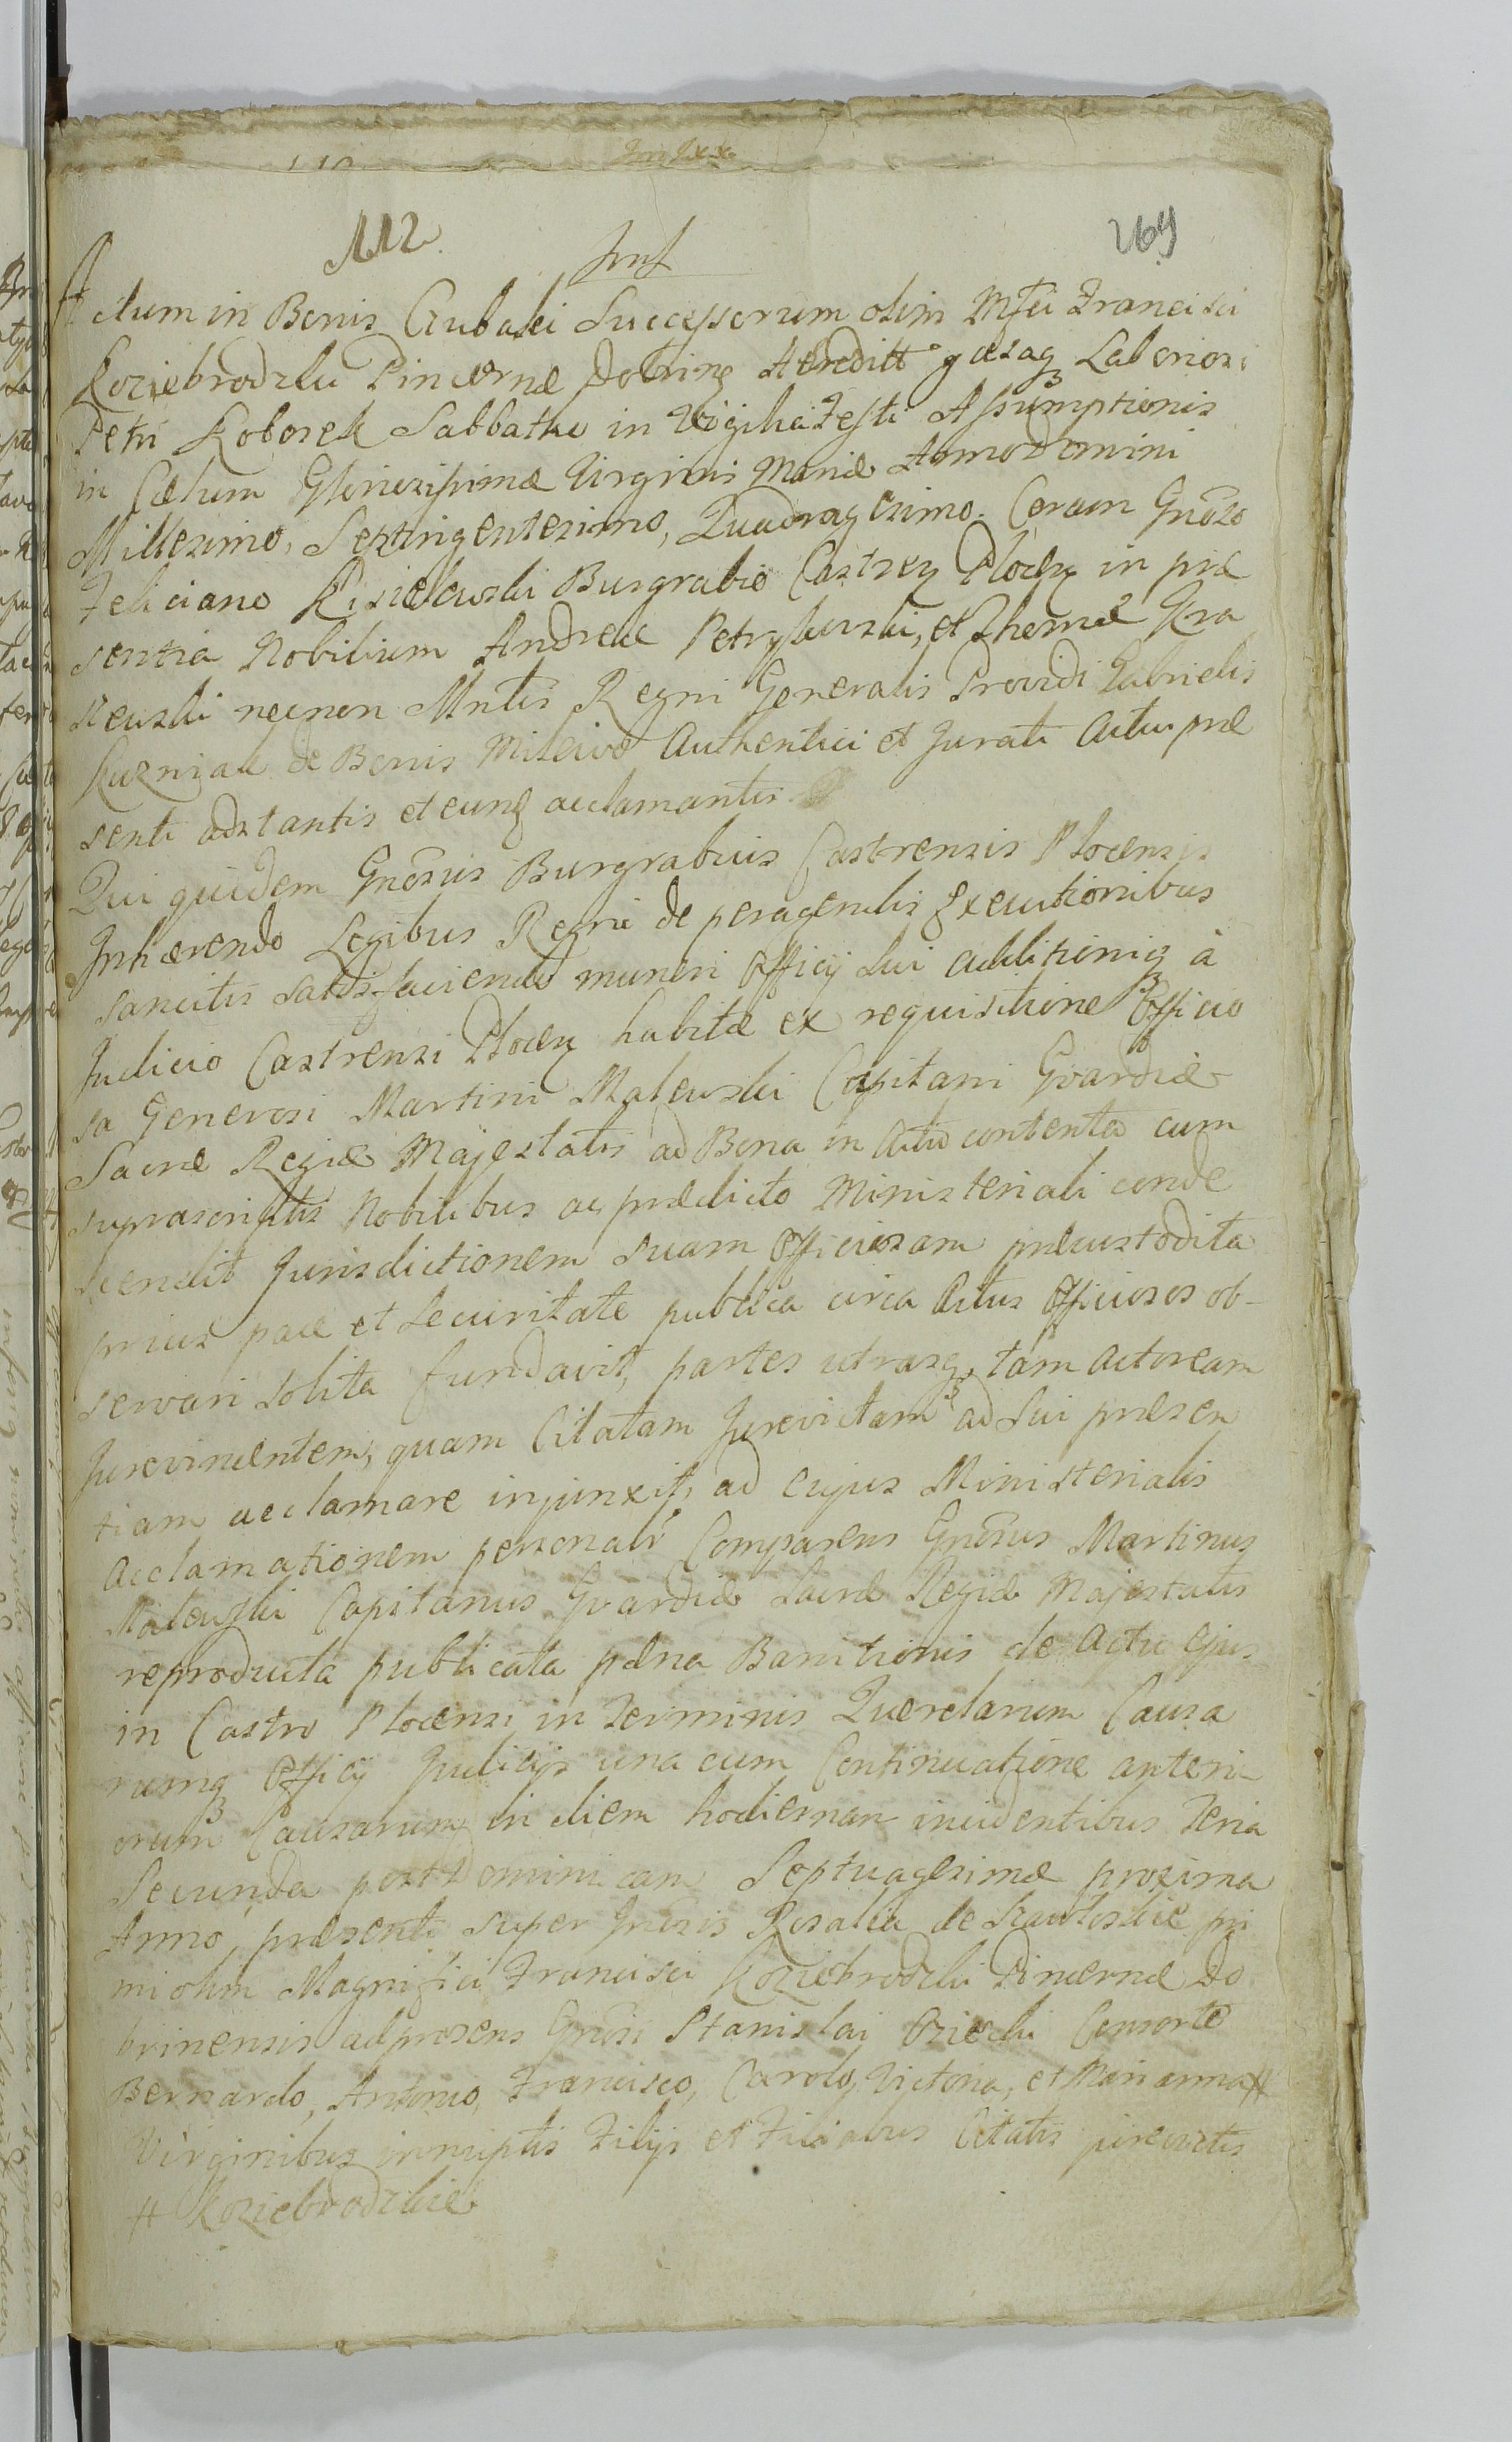 112.
269
Actum in Bonis Gubalei Successorum olim Mfci Francisci
Koziebrodzki Pincernæ Dobrinę Hæreditt Laboriosi
Petri Koborek Sabbatho in Vigilia Festi Assumptionis
in Cælum Gloriosissimæ Virginis Mariæ Anno Domini
Millesimo, Septingentesimo, Quadragesimo. Coram Gnoso
Feliciano Kisielewski Burgrabio Castren Plocen in præ
sentia Nobilium Andreæ Petrykowski, et Thomæ Kra
siewski necnon Mntis Regni Generalis Providi Gabrielis
Kuzniak de Bonis Milewo Authentici et Jurati Actui præ
senti adstantis et eunq acclamantis.
Qui quidem Gnosus Burgrabius Castrensis Plocensis
Inhærendo Legibus Regni de peragendis Executionibus
sancitis satisfaciendo muneri Officij sui additioniq à
Judicio Castrensi Plocen habitæ ex requisitione Officio
sa Generosi Martini Malewski Capitani Gvardiæ
Sacræ Regiæ Majestatis ad Bona in Actu contenta cum
suprascriptis Nobilibus ac prædicto Ministeriali conde
scendit Jurisdictionem suam Officiosam præcustodita
prius pace et securitate publica circa Actus Officiosos ob-
servari solita fundavit, partes utrasq, tam Actoream
Jurevincentem, quam Citatam Jurevictam ad sui præsen
tiam acclamare injunxit, ad cujus Ministerialis
acclamationem personalr Comparens Gnosus Martinus
Malewski Capitanus Gvardiæ Sacræ Regiæ Majestatis
reproducta publicata pæna Banitionis de Actu ejus
in Castro Plocensi in Terminis Querelarum Causa
rumq Officij Judicijs una cum Continuatione anteri-
orum Causarum in diem hodiernam incidentibus Feria
Secunda post Dominicam Septuagesimæ proxima
Anno, præsenti super Gnosis Rosalia de pri
mi olim Magnifici Francisci Koziebrodzki Pincernæ Do
brinensis ad præsens Gnosi Stanislai Consorte
Bernardo, Antonio, Francisco, Carolo, Victoria, et Marianna #
Virginibus innuptis Filijs et Filiabus Citatis jurevictis
# Koziebrodzkie